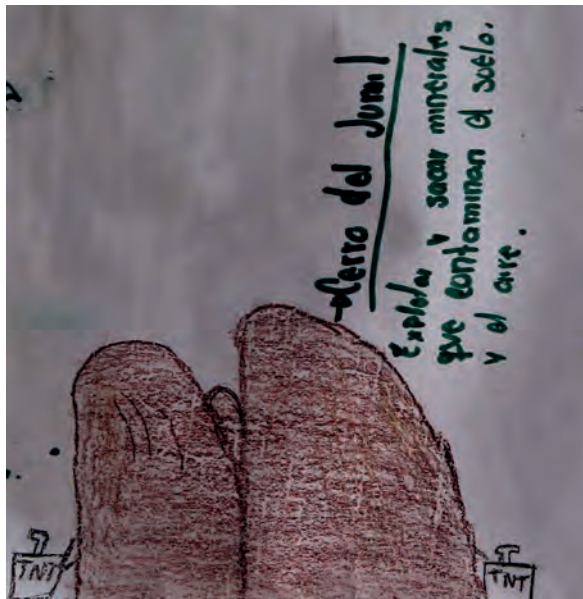 Cerro del Jumil
Explotar y sacar minerales
que contaminan el suelo.
y el aire.
TNT
TNT